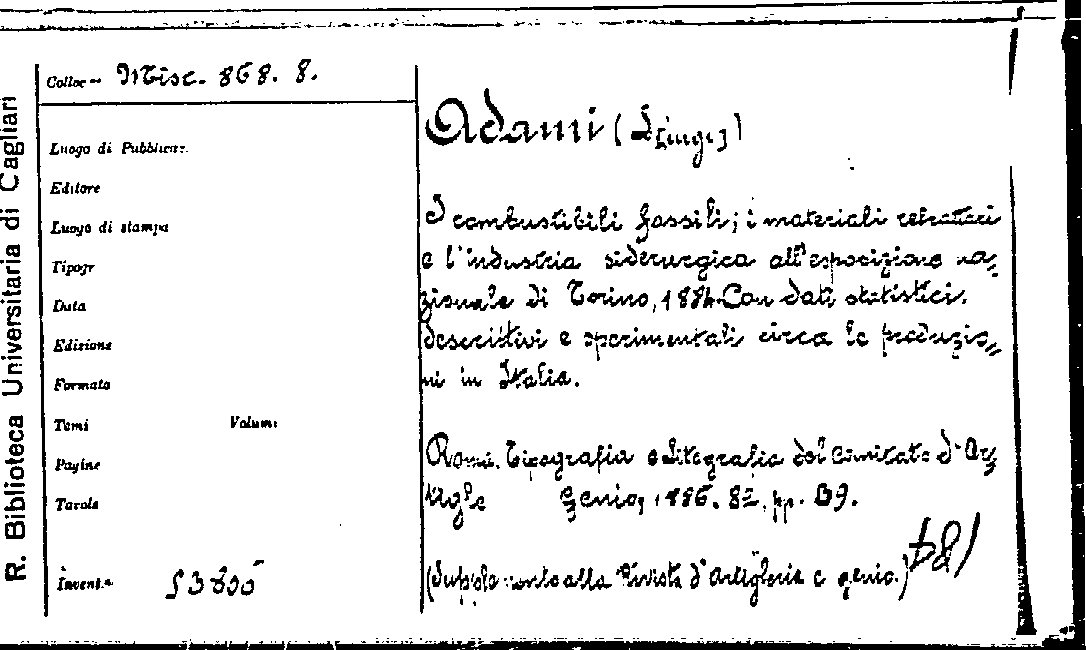 R. Biblioteca Universitaria di Cagliari
Colloc.ne Misc. 868. 8.
Luogo di Pubblicaz.
Editore
Luogo di stampa
Tipogr
Data
Edizione
Formato
Tomi Volumi
Pagine
Tavole
Invent.o 53800
Adami (Luigi)
I combustibili fossili; i materiali refrattari
e l'industria siderurgica all'esposizione na=
zionale di Torino, 1884. Con dati statistici,
descrittivi e sperimentali circa le produzio=
ni in Italia.
Roma. Tipografia e Litografia del Comitato d'Ar=
tigle Genio, 1886. 8º, pp. 139.
(Supplemento alla Rivista d'Artiglieria e genio.)